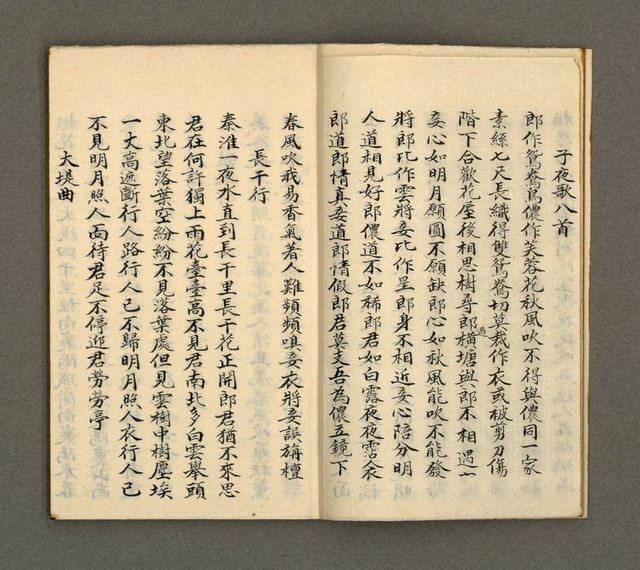 子夜歌八首
郎作鴛鴦鳥儂作芙蓉花秋風吹不得與儂同一家
素絲七尺長織得雙鴛鴦切莫裁作衣或被剪刀傷
階下合歡花屋後相思樹尋郎橫塘與郎不相遇
過
妾心如明月願圓不願缺郎心如秋風能吹不能發
將郎比作雲將妾比作星郎身不相近妾心陪分明
人道相見好郎儂道不如稀郎君如白露夜夜霑衣
郎道郎情真妾道郎情假郎君莫支吾為儂立鏡下
春風吹我易香氣著人難頻頻嗅妾衣將妾誤旃檀
長干行
秦淮一夜水直到長千里長干花正開郎君猶不來思
君在何許獨上雨花臺臺高不見君南北多白雲舉頭
東北望落葉空紛紛不見落葉處但見雲樹中樹塵埃
一丈高遮斷行人路行人已不歸明月照人衣行人已
不見明月照人面待君足不停迎君勞勞亭
大堤曲